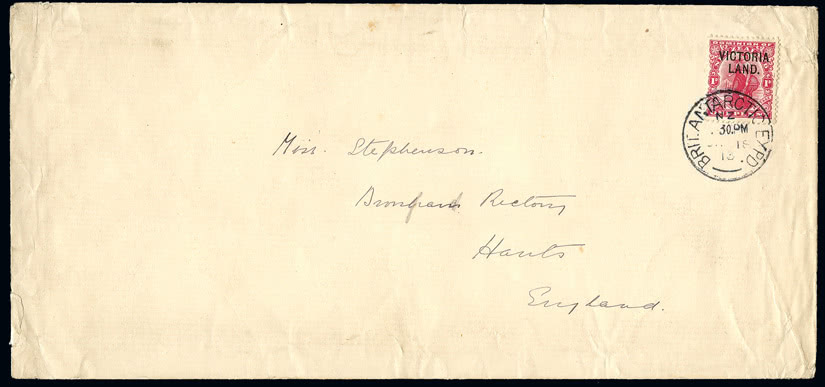 DOMINION OF
VICTORIA
LAND.
BRIT. ANTARCTIC EXPD.
N.Z.
30.PM
18
13
Miss. Stephenson.
Rectory
Hants
England.